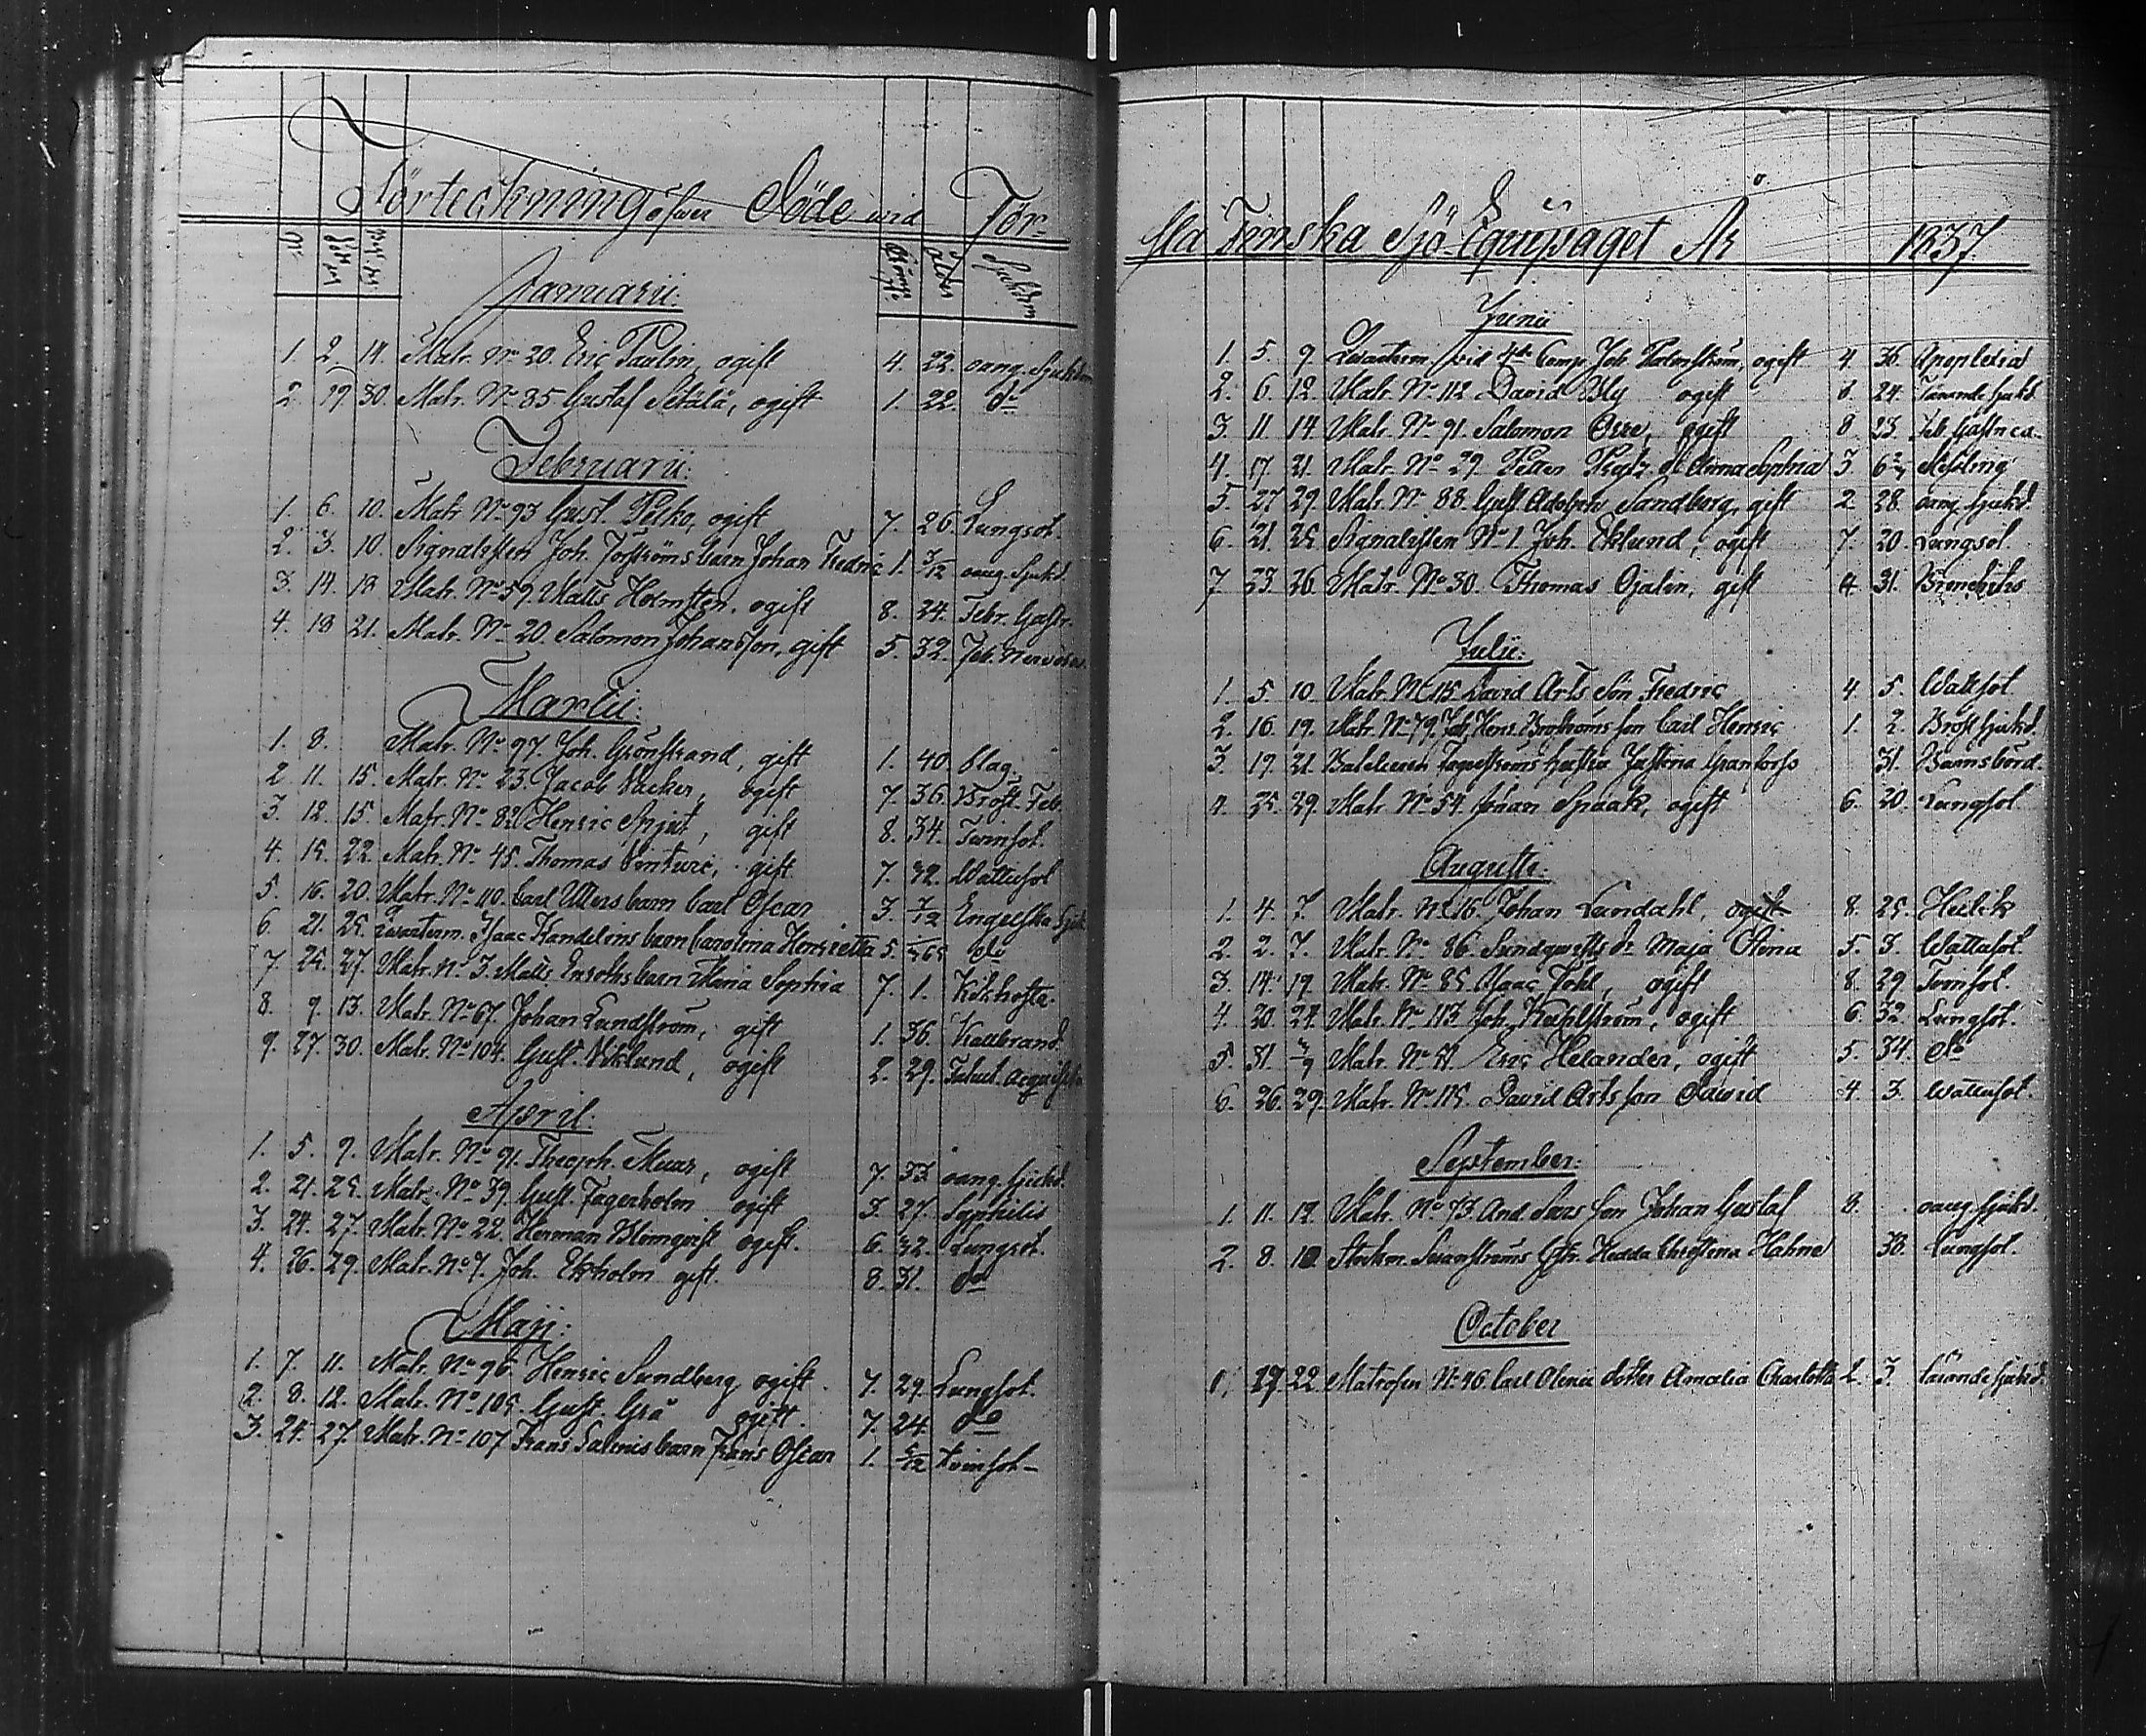 Förteckning öfwer Döde wid För-
No död. den begr. den Comp. No ålder Sjukdom
Januarii:
1. 2. 14. Matr. No 20. Eric Paulin, ogift 4. 22. oang. Sjukdom
2. 19. 30. Matr. No 85 Gustaf Setälä, ogift 1. 22. do
Februarii:
1. 6. 10. Matr No 93 Gust. Pisko, ogift 7. 26. Lungsot.
2. 3. 10. Signalisten Joh. Törströms barn Johan Fredric 1. 3/12 oang. Sjukd.
3. 14. 18 Matr. No 59. Matts Holmsten. ogift 8. 24. Febr. Gastr.
4. 18 21. Matr. No 20. Salomon Johansson, gift 5. 32. Feb. Nervosa.
Martii:
1. 8. Matr. No 97. Joh. Grönstrand, gift 1. 40. Slag.
2 11. 15. Matr. No 23. Jacob Wacker, ogift 7. 36. Bröst. Feb.
3. 12. 15. Matr. No 82 Henric Spjut, gift 8. 34. Twinsot.
4. 15. 22. Matr. No 45. Thomas Venturi, gift 7. 32. Wattusot
5. 16. 20. Matr. No 110. Carl Utters barn Carl Oscar 3. 7/12 Engelska Sjuk
6. 21. 25. Quarterm. Isaac Kandelins barn Carolina Henrietta 5. do
7. 24. 27. Matr. No 3. Matts Enroths barn Maria Sophia 7. 1. Kikhosta.
8. 9. 13. Matr. No 67. Johan Lundström, gift 1. 36. Kallbrand
9. 27. 30. Matr. No 104. Gust. Wiklund, ogift 2. 29.
April:
1. 5. 9. Matr. No 91. Theoph. Muur, ogift 7. 33 oang. Sjukd.
2. 21. 25. Matr. No 39. Gust. Fagerholm ogift 3. 27. Syphilis
3. 24. 27. Matr. No 22. Herman Blomqvist ogift. 6. 32. Lungsot.
4. 26. 29. Matr. No 7. Joh. Ekholm gift. 8. 31. do
Maji:
1. 7. 11. Matr. No 96. Henric Sundberg ogift. 7. 29. Lungsot.
2. 8. 12. Matr. No 105. Gust. Grå ogift. 7. 24. do
3. 24. 27. Matr. No 107 Frans Salmis barn Frans Oscar 1. 5/12 twinsot-
sta Finska Sjö-Equipaget År 1837.
Junii
1. 5. 9. Quarterm. vid 4de Comp. Joh. Malmström, ogift 4. 36. Apoplexia
2. 6. 12. Matr. No 112 David Bly ogift 6. 24. Tärande sjukd.
3. 11. 14. Matr. No 91. Salomon Orre, ogift 8. 23. Feb. Gastrica.
4. 17 21. Matr. No 29 Petter Pentz dr Anna Sophia 3 6 Messling
5. 27 29. Matr. No 88. Gust. Adolph Sandberg, gift 2. 28. oang. sjukd.
6. 21. 25 Signalisten No 1 Joh. Eklund, ogift 7. 20. Lungsot.
7 23. 26. Matr. No 30. Thomas Ojalin, gift 4. 31. Bronchitis
Julii:
1. 5. 10. Matr. No 115 David Arts Son Fredric 4. 5. Wattsot.
2. 16. 19. Matr. No 79. Joh. Henr. Broströms son Carl Henric 1. 2. Bröst sjukd.
3. 19. 21. Fagerströms hustru Justina 31. Barnsbörd.
4. 25 29. Matr. No 54. Johan Spaak, ogift 6. 20. Lungsot.
Augusti:
1. 4. 7. Matr. No 16. Johan Lundahl, ogift 8. 25. Hectik
2. 2. 7. Matr. No 86. Sundqwists dr Maja Olena 5. 3. Wattusot.
3. 14. 19. Matr. No 85 Isaac Pohl, ogift 8. 29. Twinsot.
4. 20. 24. Matr. No 113 Joh. Kahlström, ogift 6. 32. Lungsot.
5. 31. 3/9 Matr. No 51 Eric Helander, ogift 5. 34. do
6. 26. 29. Matr. No 115. David Arts son David 4. 3. Wattusot.
September:
1. 11. 19. Matr. No 73 And. Son Johan Gustaf 8. oang. sjukd.
2. 8. 10. Swanströms Hedda Christina 38. Lungsot.
October
1. 17. 22. Matrosen No 46. Carl Olenii dotter Amalia Charlotta 2. 3. tärande sjukd.